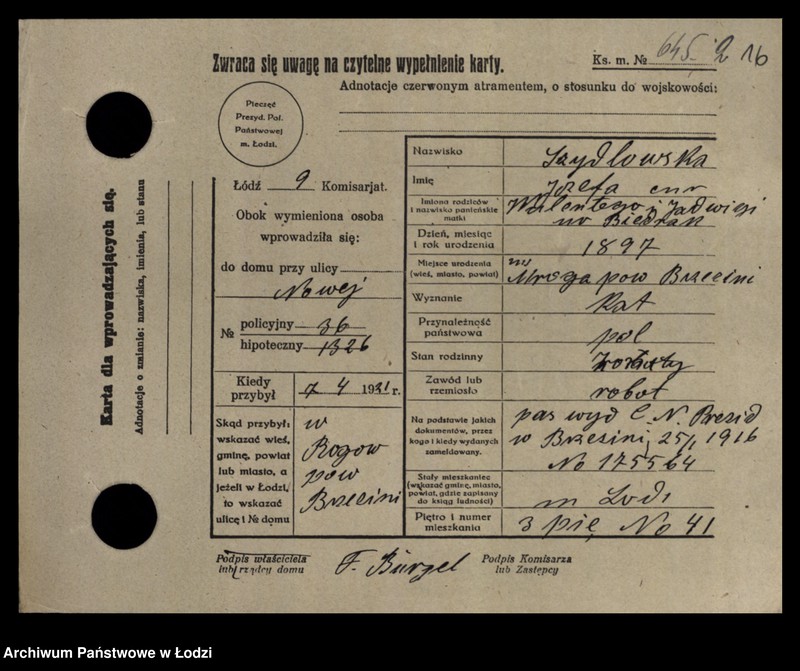 Zwraca się uwagę na czytelne wypełnienie karty.
Ks. m. № 645. 2 16
Adnotacje czerwonym atramentem, o stosunku do wojskowości:
Pieczęć
Prezyd. Pol.
Państwowej
m. Łodzi.
Karta dla wprowadzających się.
Adnotacje o zmianie: nazwiska, imienia, lub stanu
Łódź 9 Komisarjat.
Obok wymieniona osoba
wprowadziła się:
do domu przy ulicy
Nowej
№ policyjny 36
hipoteczny 1326
Kiedy przybył 7 4 1921 r.
Skąd przybył: wskazać wieś, gminę, powiat lub miasto, a jeżeli w Łodzi, to wskazać ulicę i № domu
w
Rogow
pow
Brzezini
Nazwisko Szydlowska
Imię Jozefa
Imiona rodziców i nazwisko panieńskie matki Walentego i Jadwigi
Dzień, miesiąc i rok urodzenia 1897
Miejsce urodzenia (wieś, miasto, powiat) Mroga pow Brzezini
Wyznanie Kat
Przynależność państwowa pol
Stan rodzinny
Zawód lub rzemiosło robot
Na podstawie jakich dokumentów, przez kogo i kiedy wydanych zameldowany.
pas wyd C. N. Prezid
w Brzezini, 25/1 1916
No 175564
Stały mieszkaniec (wskazać gminę, miasto, powiat, gdzie zapisany do ksiąg ludności) m Lodz
Piętro i numer mieszkania 3 pię No 41
Podpis właściciela
lub rządcy domu
F. Bürgel
Podpis Komisarza
lub Zastępcy
Archiwum Państwowe w Łodzi